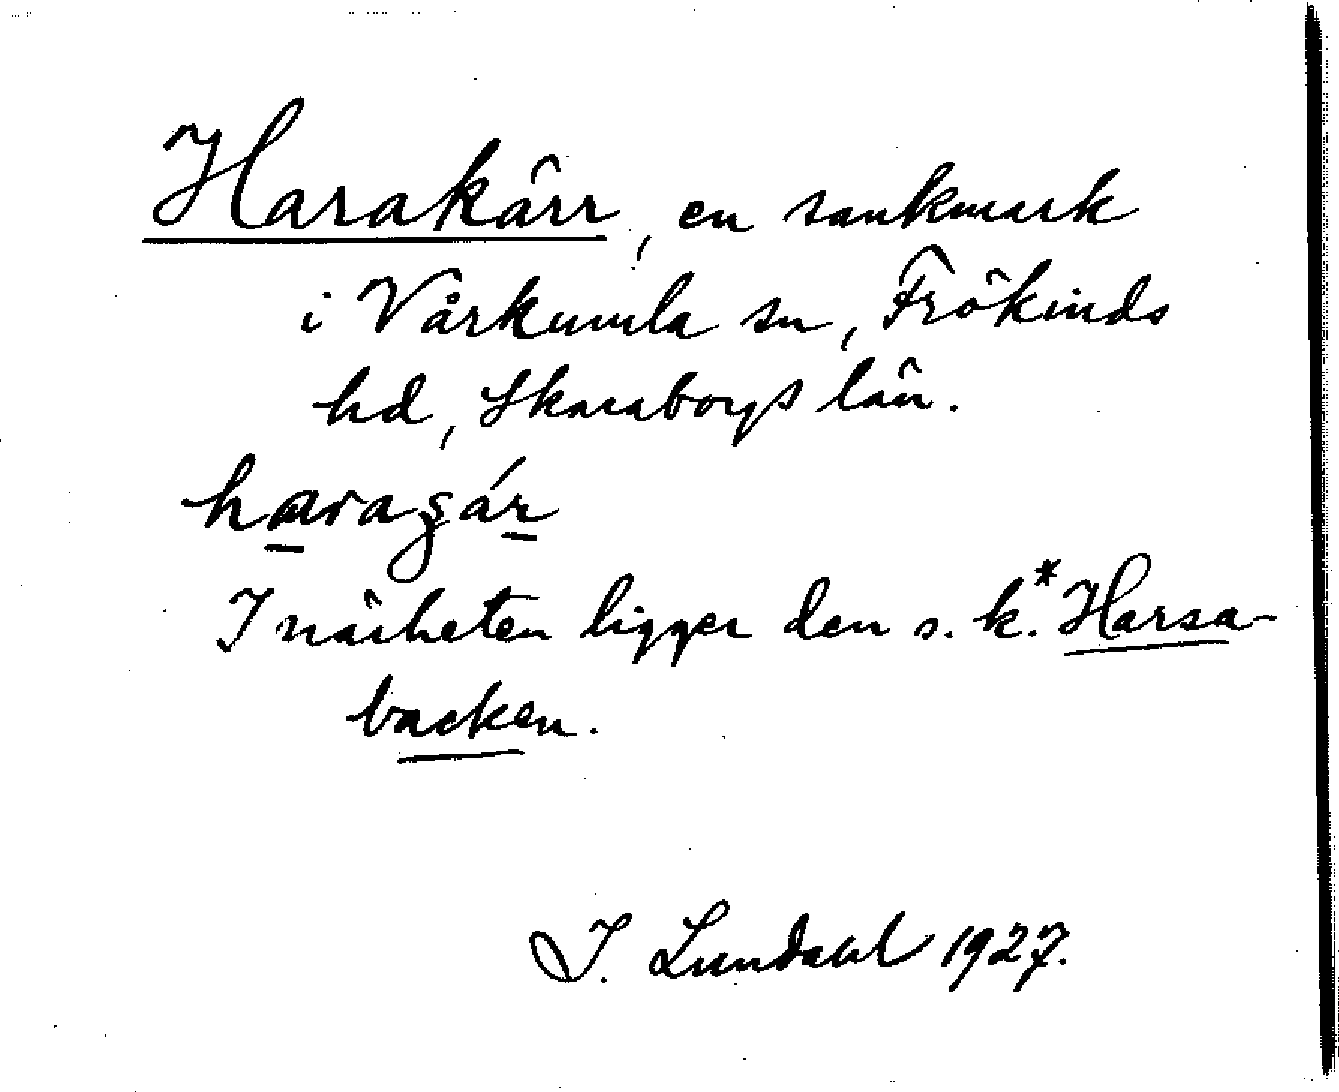 Harakärr, en sankmark
i Vårkumla sn, Frökinds
hd, Skaraborgs län.
haraȿár
I närheten ligger den s. k. *Harsa-
backen.
I. Lundahl 1927.